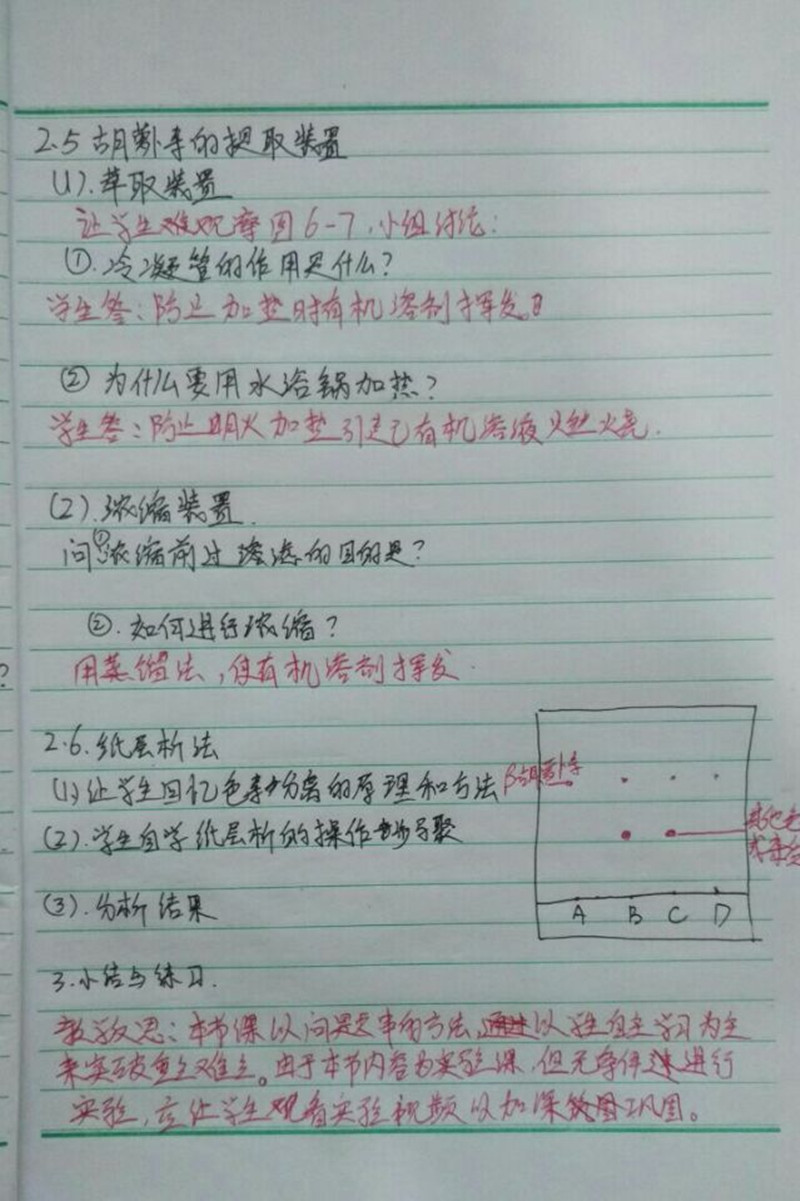 2.5 胡萝卜素的提取装置
(1). 萃取装置
让学生观摩图6-7,小组讨论:
①.冷凝管的作用是什么?
学生答:防止加热时有机溶剂挥发
② 为什么要用水浴锅加热?
学生答:防止明火加热引起有机溶液燃烧.
(2).浓缩装置.
问①浓缩前过滤的目的是?
②.如何进行浓缩?
用蒸馏法,使有机溶剂挥发.
2.6.纸层析法
(1)让学生回忆色素分离的原理和方法
β胡萝卜素
(2).学生自学纸层析的操作步骤
其他色
(3).分析结果
A B C D
3.小结与练习.
教学反思:本节课以问题串的方法,通过以学生自主学习为主
来突破重点难点。由于本节内容为实验课,但无条件进行
实验,应让学生观看实验视频以加深巩固。